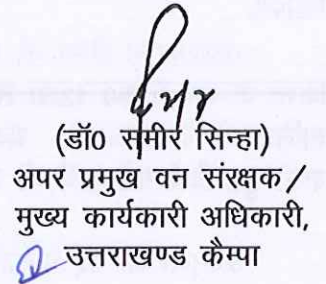 (डॉ0 समीर सिन्हा)
अपर प्रमुख वन संरक्षक/
मुख्य कार्यकारी अधिकारी,
उत्तराखण्ड कैम्पा